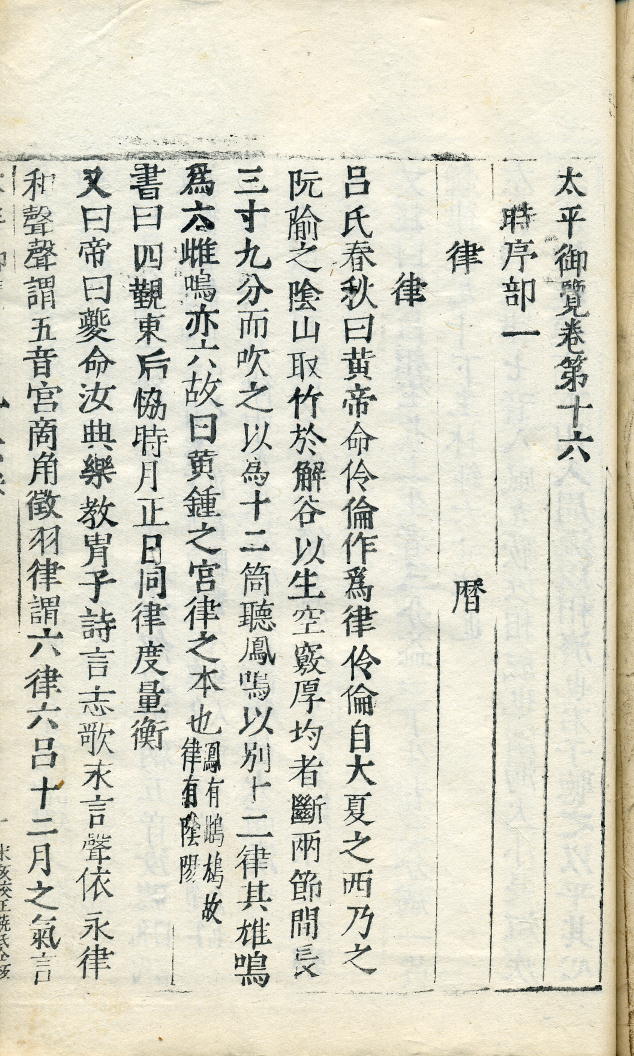 太平御覽卷第十六
時序部一
律 暦
律
吕氏春秋曰黄帝命伶倫作爲律伶倫自大夏之西乃之
阮隃之陰山取竹於解谷以生空竅厚均者斷兩節間長
三寸九分而吹之以為十二筒聽鳳鳴以别十二律其雄鳴
爲六雌鳴亦六故曰黄鍾之宫律之本也鳳有鵾鵠故
律有陰陽
書曰四覲東后恊時月正日同律度量衡
又曰帝曰夔命汝典樂教胄子詩言志歌永言聲依永律
和聲聲謂五音宫商角徵羽律謂六律六吕十二月之氣言